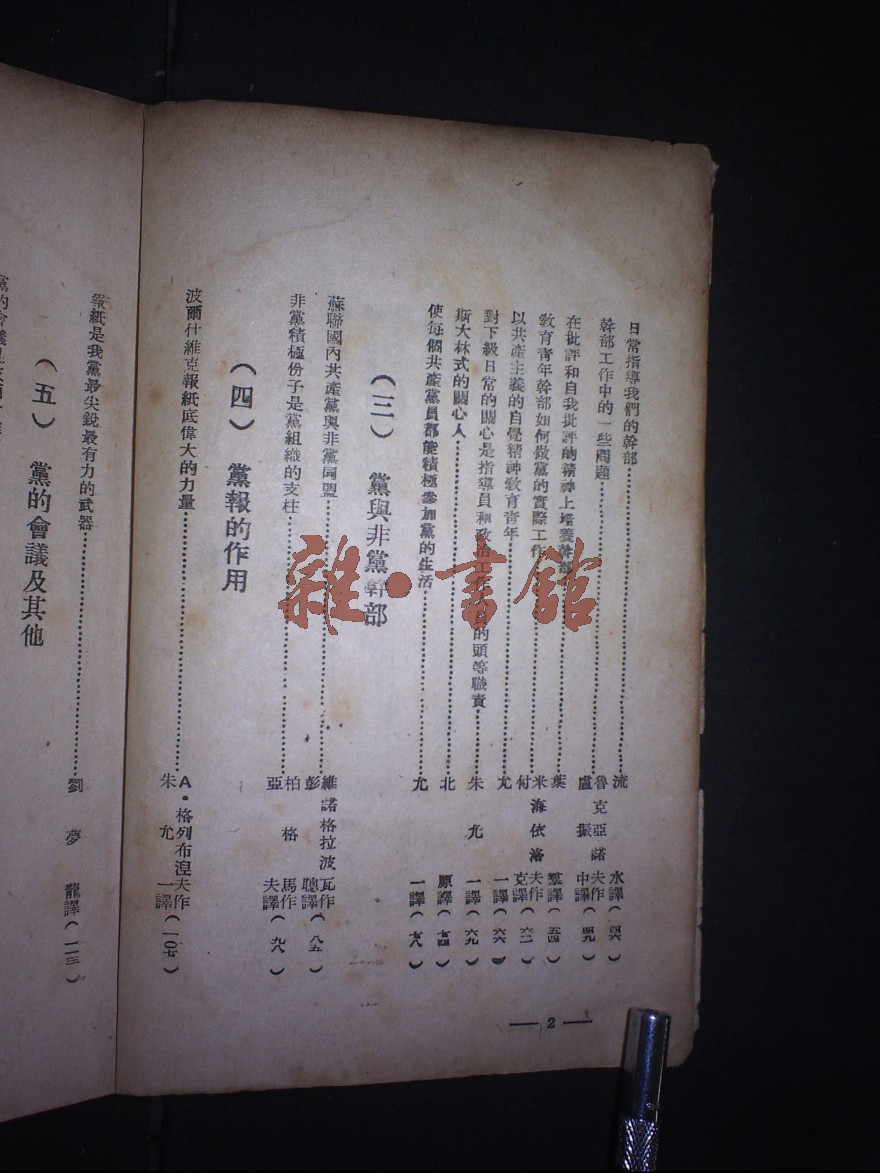 日常指導我們的幹部……流水譯（四六）
幹部工作中的一些問題……魯克亞諾夫作 盧振中譯（四九）
在批評和自我批評的精神上培養幹部……葉羣譯（五四）
教育青年幹部如何做黨的實際工作……米海依洛夫作 付克譯（六二）
以共產主義的自覺精神教育青年……尤一譯（六六）
對下級日常的關心是指導員和政治工作人員的頭等職責……朱允一譯（六九）
斯大林式的關心人……北原譯（七四）
使每個共產黨員都能積極參加黨的生活……允一譯（七八）
（三） 黨與非黨幹部
蘇聯國內共產黨與非黨同盟……維諾格拉波瓦作 彭聰譯（八五）
非黨積極份子是黨組織的支柱……柏格馬作 亞夫譯（九八）
（四） 黨報的作用
波爾什維克報紙底偉大的力量……A·格列布湼夫作 朱允一譯（一〇七）
報紙是我黨最尖銳最有力的武器……劉夢龍譯（一一三）
（五） 黨的會議及其他
黨的會議
— 2 —
雜·書館